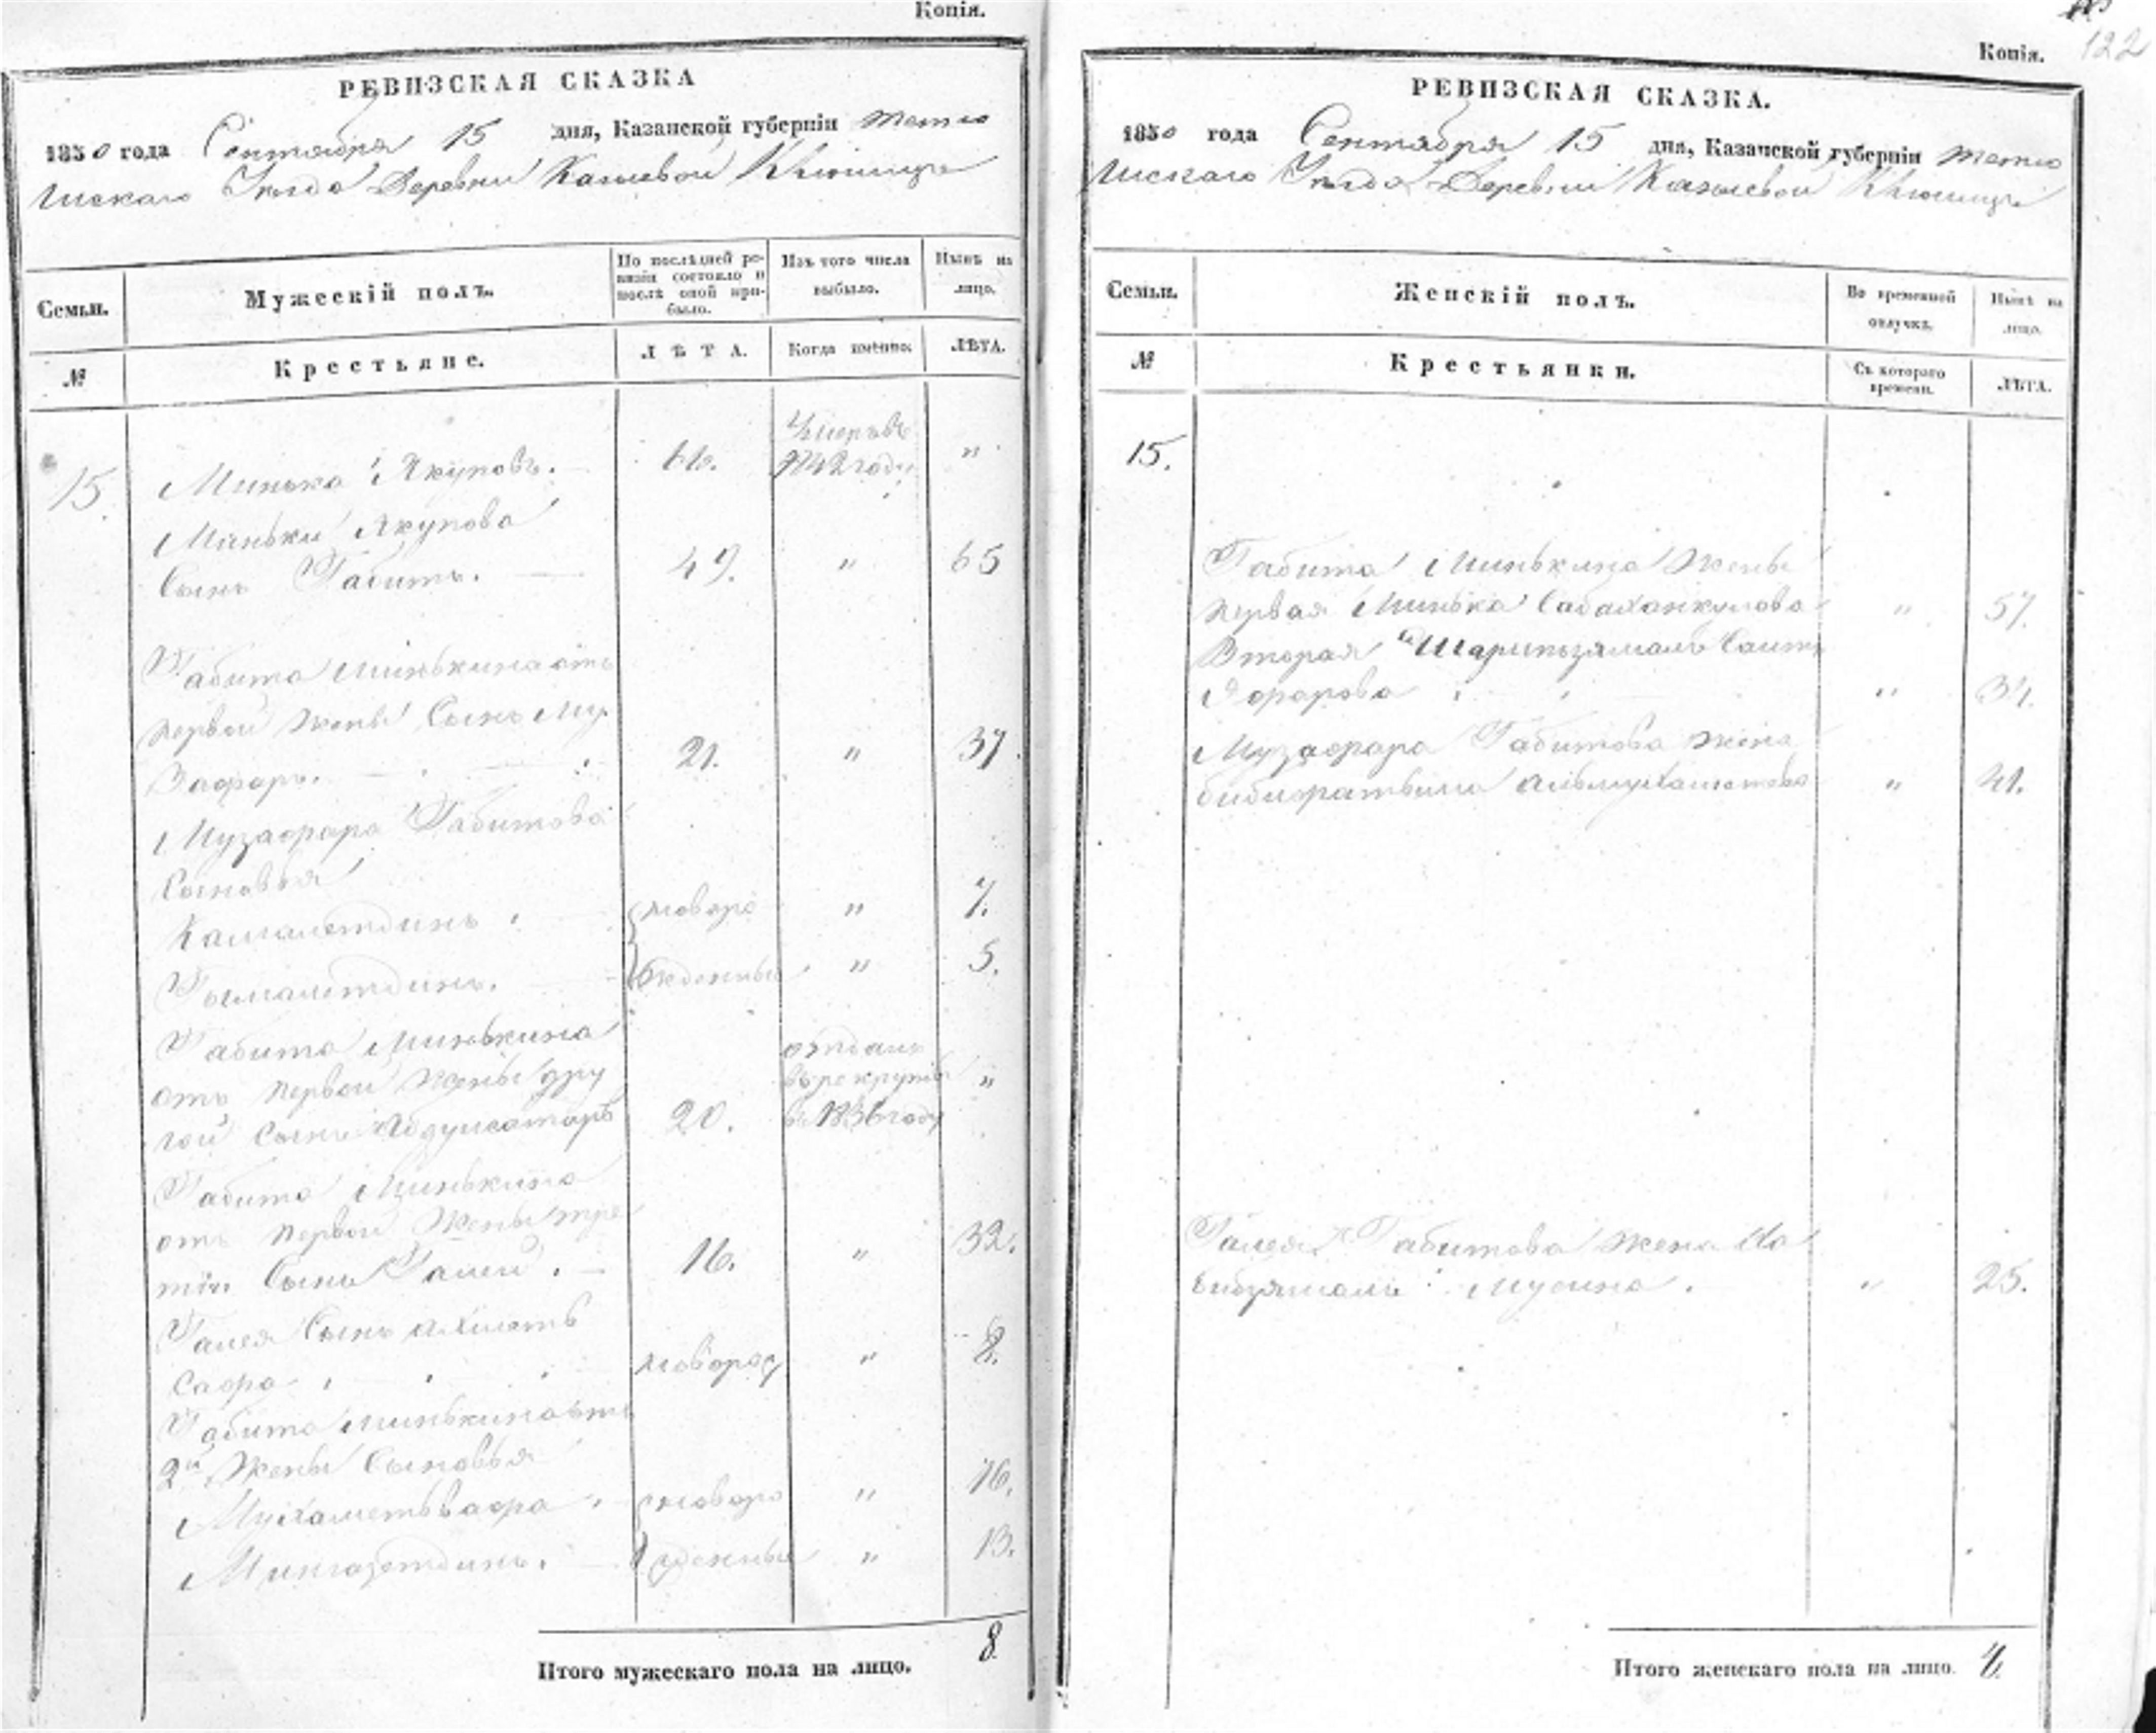 Копія.
РЕВИЗСКАЯ СКАЗКА
1850 года Сентября 15 дня, Казанской губерніи Тетю
шскаго Уезда Деревни Кашевой
Семьи.
Мужескій полъ.
По послѣдней ре-
визіи состояло и
послѣ оной при-
было.
Изъ того числа
выбыло.
Нынѣ на
лицо.
№
Крестьяне.
ЛѢТА.
Когда именно.
ЛѢТА.
15.
Минька Якуповъ. 66. Умеръ въ 1842 году "
Миньки Якупова
Сынъ Габитъ. 49. " 65
Габита Минькина отъ
первой жены Сынъ Му
зафаръ. 21. " 37.
Музафара Габитова
Сыновья
Камалетдинъ. новоро " 7.
жденные " 5.
Габита Минькина
отъ первой жены дру
гой сынъ Абдулсатаръ 20. отданъ въ рекруты в 1836 году "
Габита Минькина
отъ первой жены тре
тій Сынъ Галей. 16. " 32.
Галея Сынъ Ахметъ
Сафа новорож " 8.
Габита Минькина отъ
2й Жены Сыновья
Мухаметъ Вафа новоро " 16.
Мингазетдинъ. жденные " 13.
Итого мужескаго пола на лицо. 8
122
Копія.
РЕВИЗСКАЯ СКАЗКА.
1850 года Сентября 15 дня, Казанской губерніи Тетю
шскаго Уезда Деревни Кашевой
Семьи.
Женскій полъ.
Во временной
отлучкѣ.
Нынѣ на
лицо.
№
Крестьянки.
Съ котораго
времени.
ЛѢТА.
15.
Габита Минькина Жены
первая Минька " 57.
Вторая Шарипзямалъ Саитъ
Яфарова " 34.
Музафара Габитова жена
Бибифатьима " 41.
Галея Габитова жена Ха
бибзямалъ Мусина. " 25.
Итого женскаго пола на лицо. 4.